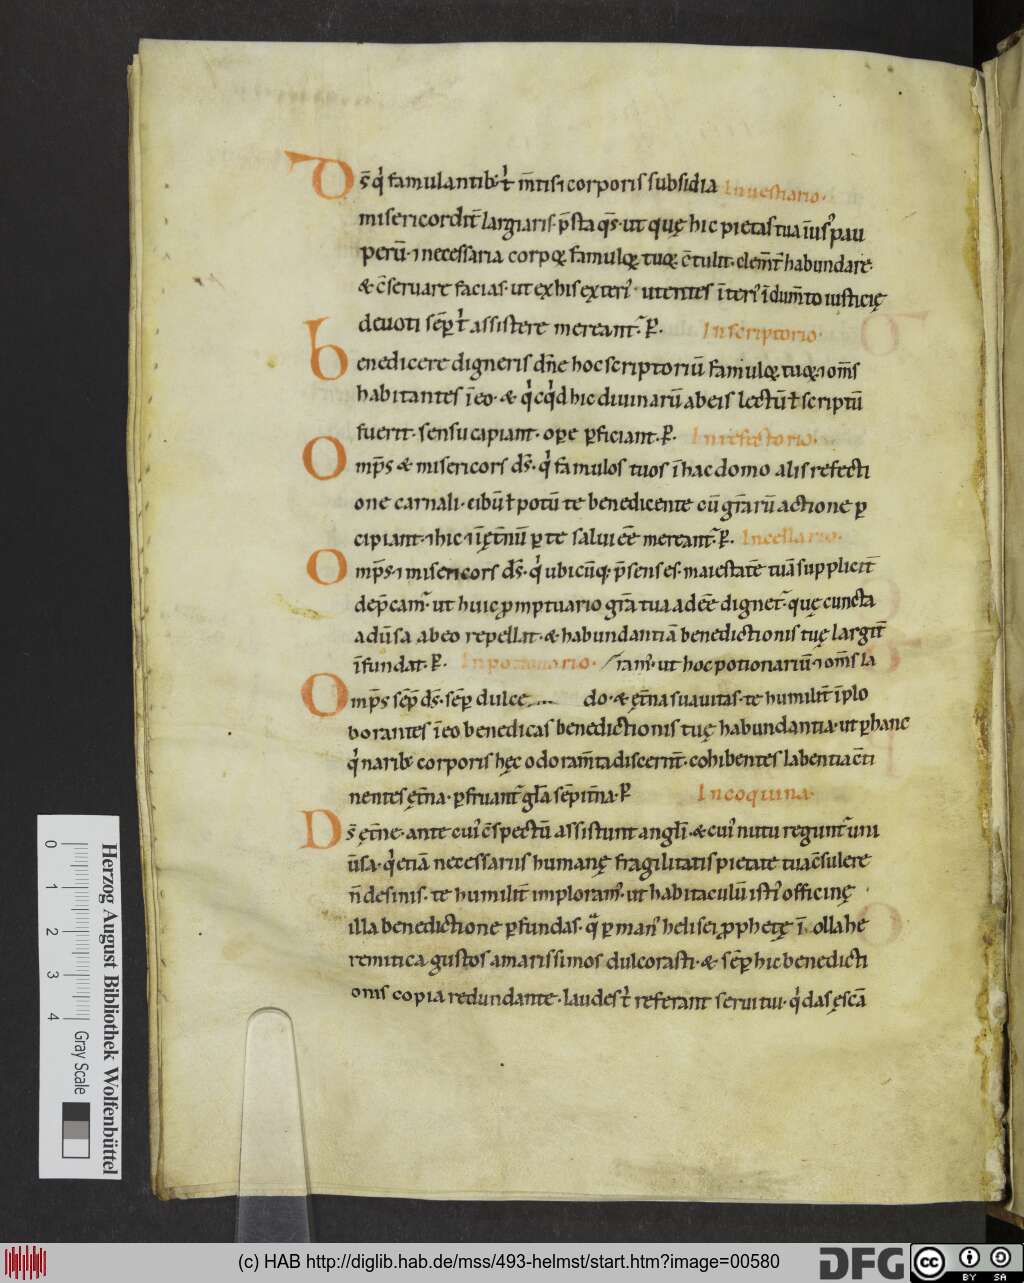 Ds̄ qͥ famulantibꝫ t͛ m̄tis ⁊ corporis subsidia In uestiario.
misericordit̄ largiaris. p̄sta q̄s. ut quę hic pietas tua ī us᷒ pau
perū. ⁊ necessaria corpoꝝ famuloꝝ tuoꝝ c̄tulit. clem̄t͛ habundare.
& c̄seruare facias. ut ex his exteri᷒ utentes īteri᷒ īdum̄to iusticię
deuoti sēꝑ t͛ assistere mereant᷒. P. In scriptorio.
benedicere digneris dn̄e hoc scriptoriū famuloꝝ tuoꝝ. ⁊ om̄s
habitantes ī eo. & qͥcqͥd hic diuinarū ab eis lectū ł scriptū
fuerit. sensu capiant. oꝑe ꝑficiant. P. In refectorio.
Omp̄s & misericors ds̄. qͥ famulos tuos ī hac domo alis refecti
one carnali. cibū ł potū te benedicente cū gr̄arū actione ꝑ
cipiant. ⁊ hic ⁊ ī ęt̄nū ꝑ te salui ēē mereant᷒. P. In cellario.
Omp̄s. ⁊ misericors ds̄. qͥ ubicūqꝫ p̄sens es. maiestatē tuā supplicit̄
dep̄cam᷒. ut huic ꝓmptuario gr̄a tua adēē dignet᷒. quę cuncta
aduͤsa ab eo repellat. & habundantiā benedictionis tuę largit̄
īfundat. P. In potionario. /ram᷒. ut hoc potionariū. ⁊ om̄s la
Omp̄s sēꝑ ds̄. sēꝑ dulce do. & ęt̄na suauitas. te humilit̄ īplo
borantes ī eo benedicas benedictionis tuę habundantia. ut ꝑ hanc
qͥ naribꝫ corporis hęc odoram̄ta discernt̄. cohibentes labentia c̄ti
nentes ęt̄na. ꝑfruant᷒ gl̄a sēpit̄na. P In coquina.
Ds̄ ęt̄ne. ante cui᷒ c̄spectū assistunt angl̄i. & cui᷒ nutu regunt᷒ uni
ūsa. qͥ etiā necessariis humanę fragilitatis pietate tua c̄sulere
n̄ desinis. te humilit̄ imploram᷒. ut habitaculū isti᷒ officinę
illa benedictione ꝑfundas. qͣ ꝑ man᷒ helisei ꝓphetę ī olla he
remitica gustos amarissimos dulcorasti. & sēꝑ hic benedicti
onis copia redundante. laudes t͛ referant serui tui. qͥ das ęscā
Herzog August Bibliothek Wolfenbüttel
0 1 2 3 4 Gray Scale
(c) HAB http://diglib.hab.de/mss/493-helmst/start.htm?image=00580
DFG
cc BY SA